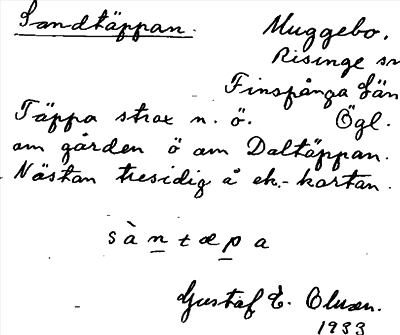 Sandtäppan. Muggebo.
Risinge sn
Finspånga län
Täppa strax n. ö. Ögl.
om gården ö om Daltäppan.
Nästan tresidig å ek.-kartan.
sàntæpa
Gustaf E. Olsson.
1933